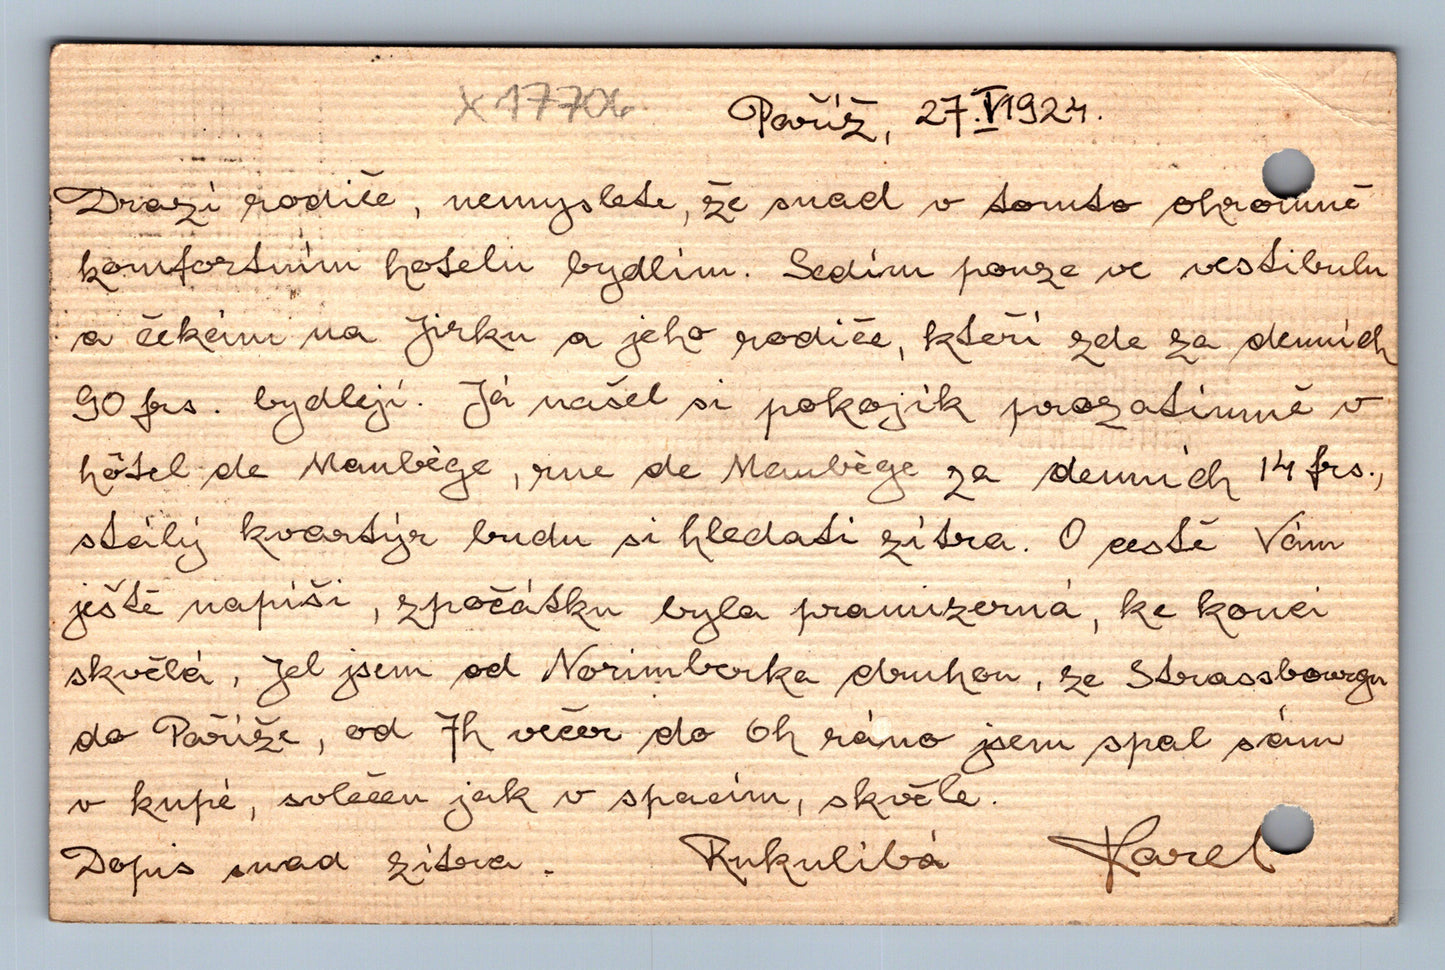 X 17706
Paříž, 27.V.1924.
Drazí rodiče, nemyslete, že snad v tomto ohromně
komfortním hotelu bydlím. Sedím pouze ve vestibulu
a čekám na Jirku a jeho rodiče, kteří zde za denních
90 frs. bydlejí. Já našel si pokojík prozatímně v
hôtel de Maubège, rue de Maubège za denních 14 frs.,
stálý kvartýr budu si hledati zítra. O cestě Vám
ještě napíši, zpočátku byla pramizerná, ke konci
skvělá, jel jsem od Norimberka druhou, ze Strassbourgu
do Paříže, od 7h večer do 6h ráno jsem spal sám
v kupé, svlečen jak v spacím, skvěle.
Dopis snad zítra. Rukulíbá Karel